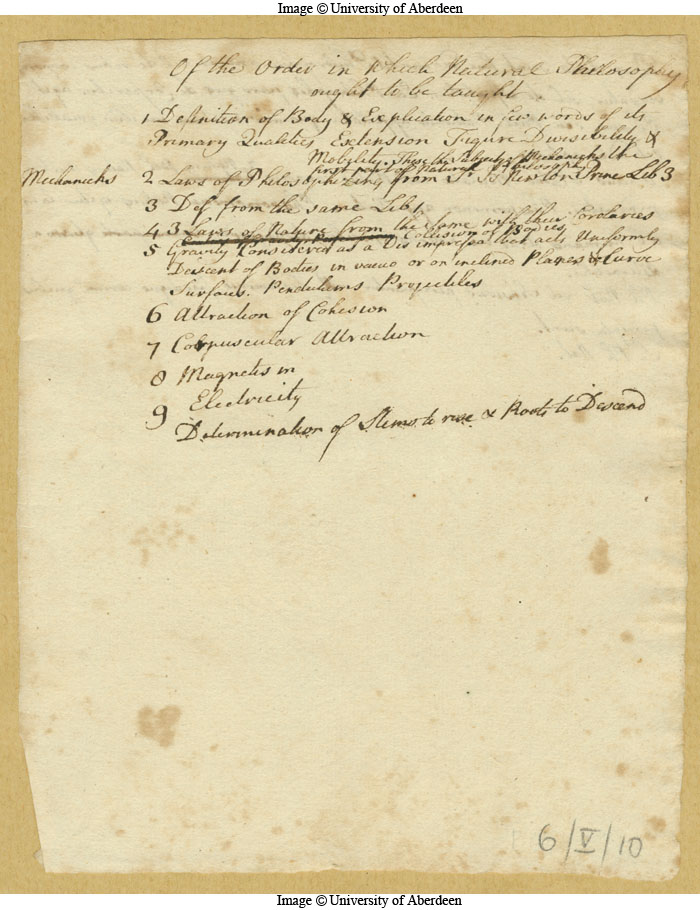 Image © University of Aberdeen
Of the Order in which Natural Philosophy
ought to be taught
1 Definition of Body & Explication in few words of its
Primary Qualities Extension Figure Divisibility &
Mobility. These the Subject of Mechanicks the
first part of Natural Philosophy
Mechanicks 2 Laws of Philosophizing from Sr Is Newton Princ Lib 3
3 Def from the same Lib 1
4 3 Laws of Nature from the same with their Corolaries
Collision of Bodies
5 Gravity Considered as a Vis impressa that acts Uniformly
Descent of Bodies in vacuo or on inclined Planes & Curve
Surfaces. Pendulums Projectiles
6 Attraction of Cohesion
7 Corpuscular Attraction
8 Magnetism
9 Electricity
Determination of Stems to rise & Roots to Descend
6/V/10
Image © University of Aberdeen